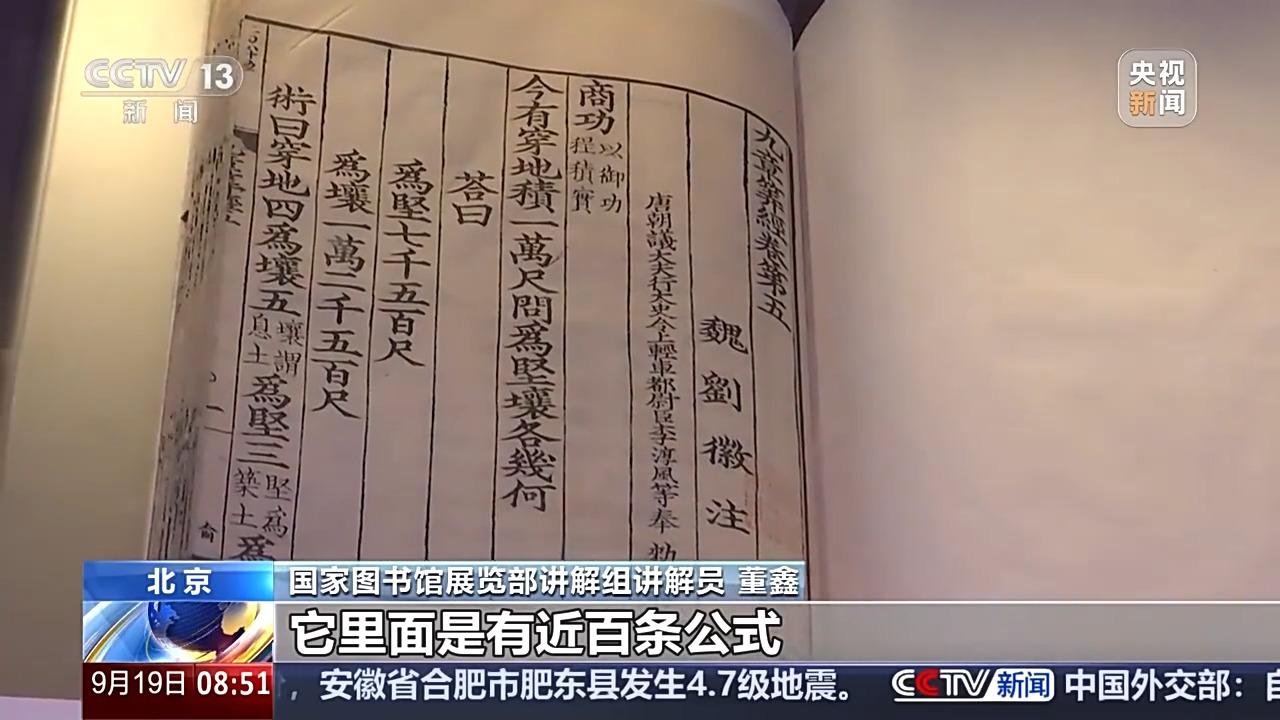 CCTV 13
新闻
央视
新闻
九章筭經卷第五
魏劉徽注
唐朝議大夫行太史令上輕車都尉臣李淳風等奉 勑
商功以御功
程積實
今有穿地積一萬尺問爲堅壤各幾何
荅曰
爲堅七千五百尺
爲壤一萬二千五百尺
術曰穿地四爲壤五壤謂
息土爲堅三堅爲
築土爲
北京
国家图书馆展览部讲解组讲解员 董鑫
它里面是有近百条公式
9月19日 08:51
，安徽省合肥市肥东县发生4.7级地震。 CCTV 新闻 中国外交部：